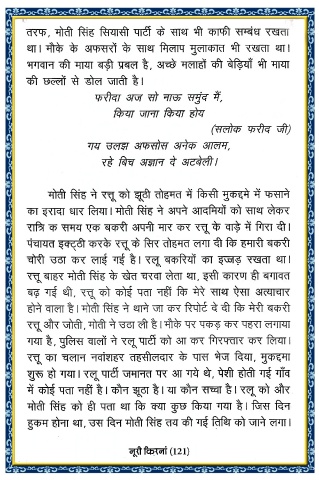 तरफ, मोती सिंह सियासी पार्टी के साथ भी काफी सम्बंध रखता
था। मौके के अफसरों के साथ मिलाप मुलाकात भी रखता था।
भगवान की माया बड़ी प्रबल है, अच्छे मलाहों की बेड़ियाँ भी माया
की छल्लों से डोल जाती है।
फरीदा अज सो नाऊ समुंद मैं,
किया जाना किया होय
(सलोक फरीद जी)
गय उलझ अफसोस अनेक आलम,
रहे बिच अज्ञान दे अटबेली।
मोती सिंह ने रत्तू को झूठी तोहमत में किसी मुकद्दमे में फसाने
का इरादा धार लिया। मोती सिंह ने अपने आदमियों को साथ लेकर
रात्रि क समय एक बकरी अपनी मार कर रत्तू के वाड़े में गिरा दी।
पंचायत इक्ट्ठी करके रत्तू के सिर तोहमत लगा दी कि हमारी बकरी
चोरी उठा कर लाई गई है। रलू बकरियों का इज्जड़ रखता था।
रत्तू बाहर मोती सिंह के खेत चरवा लेता था, इसी कारण ही बगावत
बढ़ गई थी, रत्तू को कोई पता नहीं कि मेरे साथ ऐसा अत्याचार
होने वाला है। मोती सिंह ने थाने जा कर रिपोर्ट दे दी कि मेरी बकरी
रत्तू और जोती, मोती ने उठा ली है। मौके पर पकड़ कर पहरा लगाया
गया है, पुलिस वालों ने रलू पार्टी को आ कर गिरफ्तार कर लिया।
रत्तू का चलान नवांशहर तहसीलदार के पास भेज दिया, मुकद्दमा
शुरू हो गया। रलू पार्टी जमानत पर आ गये थे, पेशी होती गई गाँव
में कोई पता नहीं है। कौन झूठा है। या कौन सच्चा है। रलू को और
मोती सिंह को ही पता था कि क्या कुछ किया गया है। जिस दिन
हुकम होना था, उस दिन मोती सिंह तय की गई तिथि को जाने लगा।
नूरी किरनां (121)